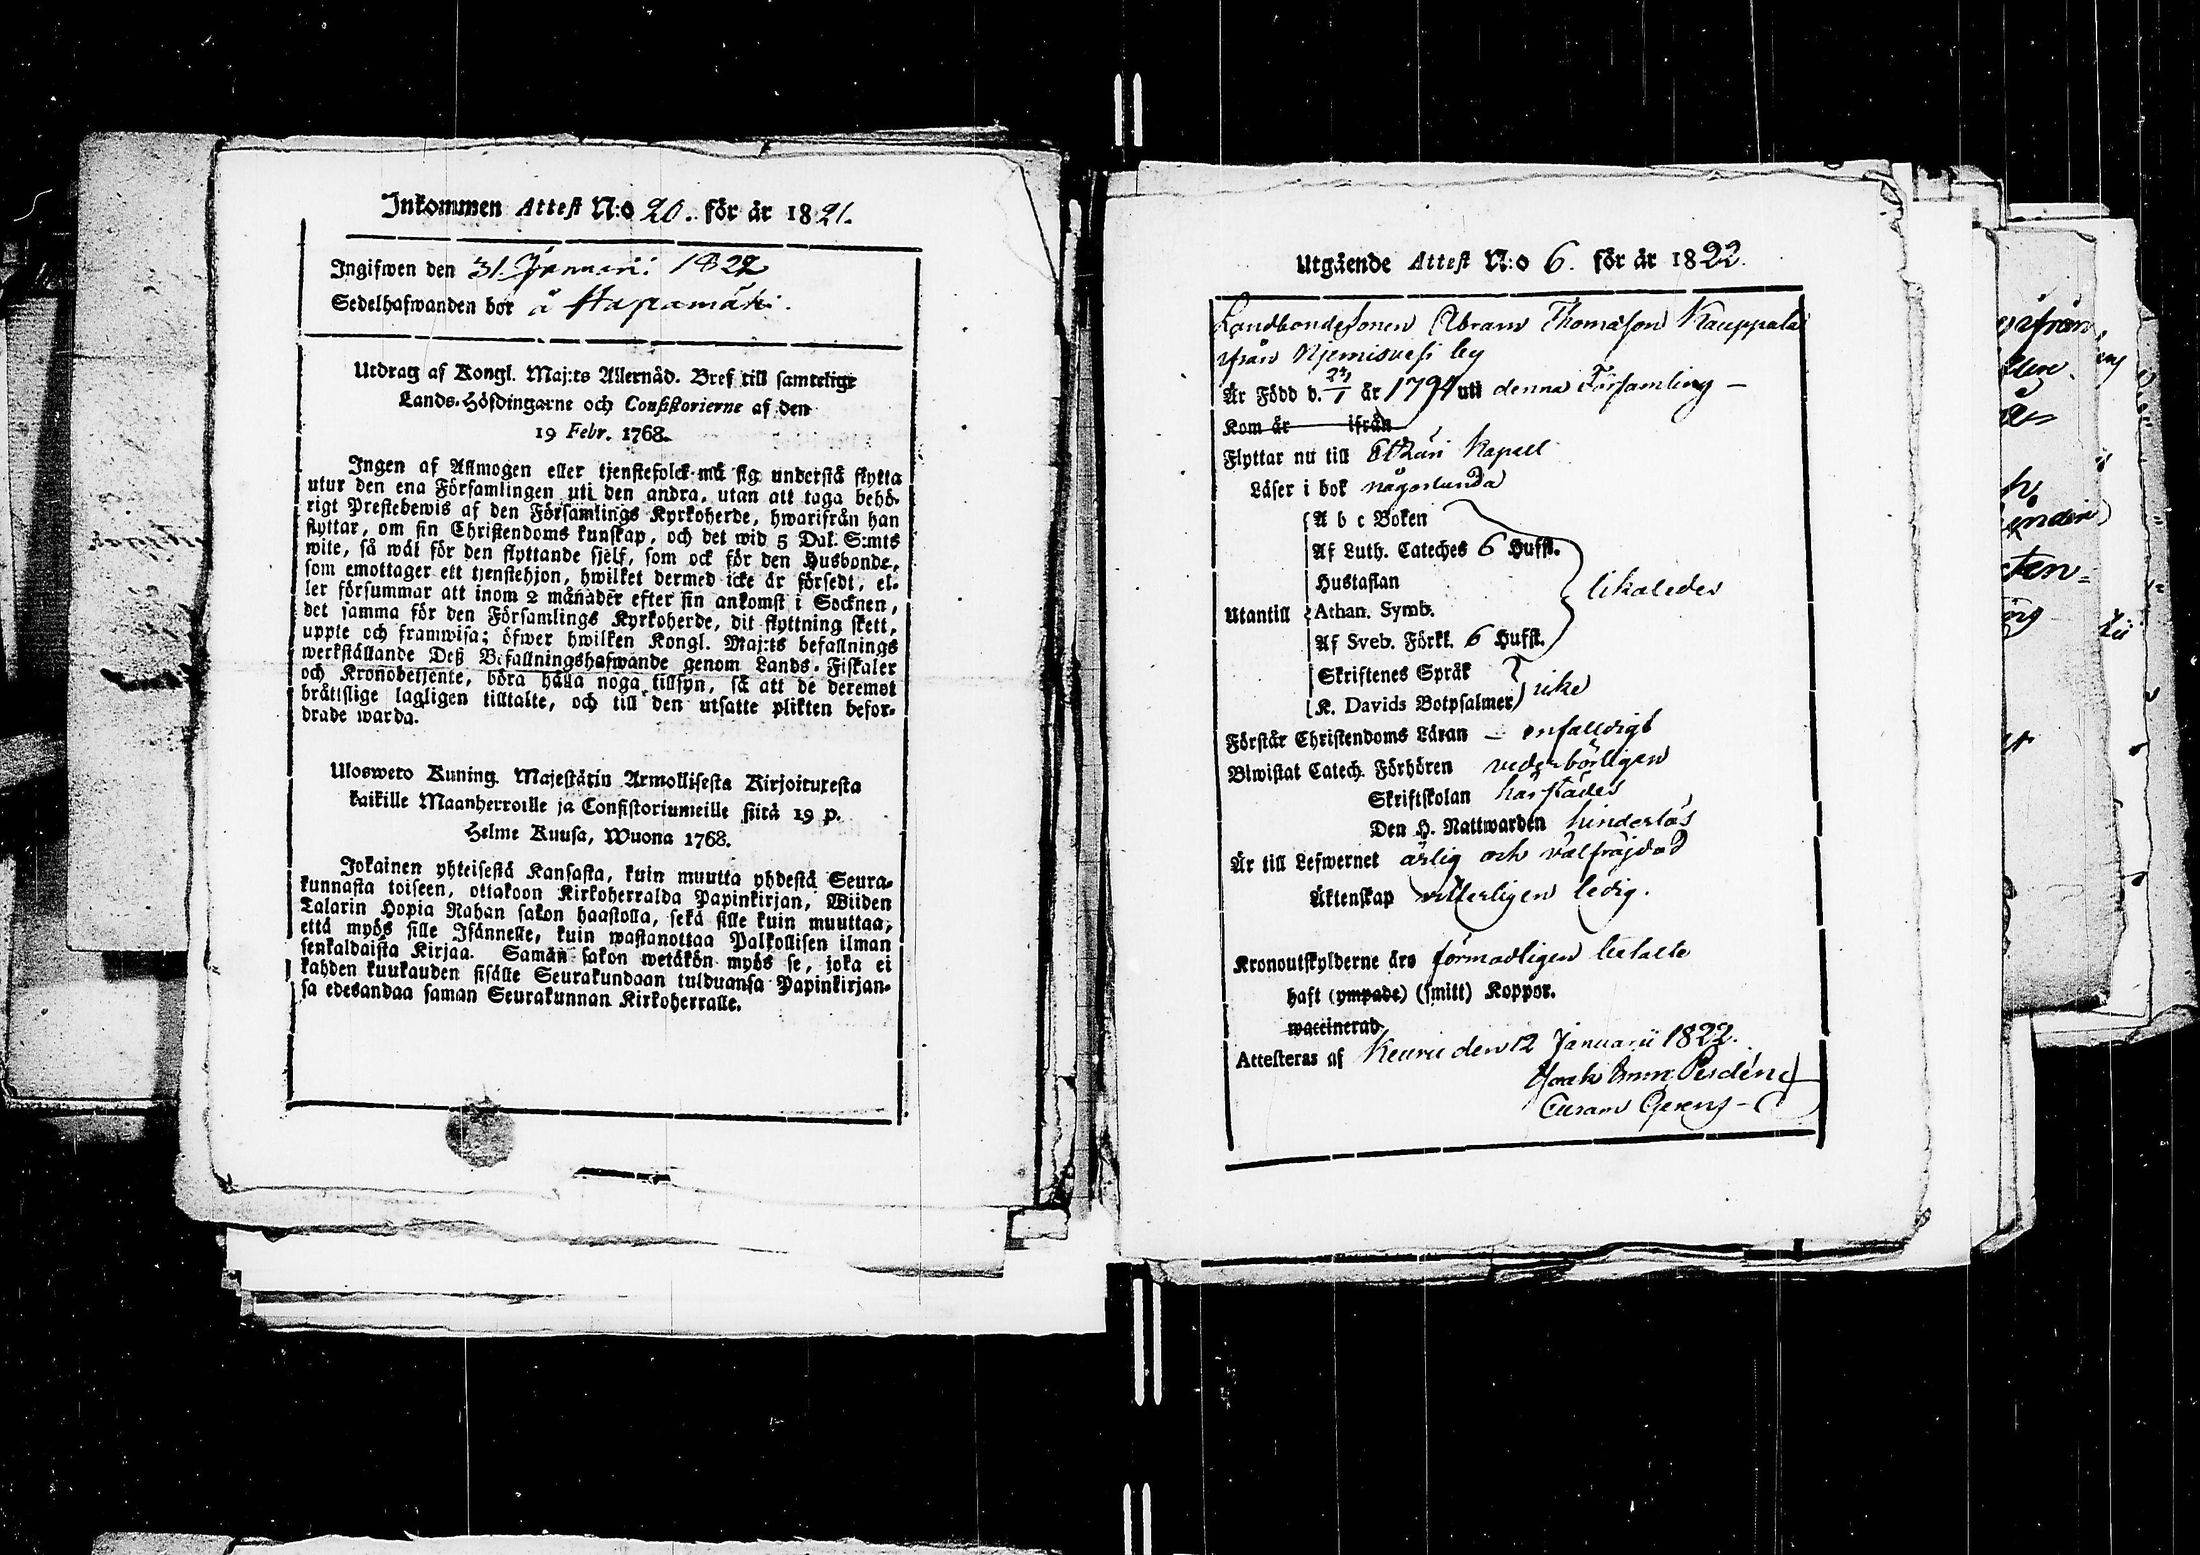 Inkommen Attest N:o 20. för år 1821.
Ingifwen den 31. Januarii 1822
Sedelhafwanden bor å Haapamäki.
Utdrag af Kongl. Maj:ts Allernåd. Bref till samtelige
Lands-Höfdingarne och Consistorierne af den
19 Febr. 1768.
Ingen af Allmogen eller tjenstefolck må sig understå flytta
utur den ena Församlingen uti den andra, utan att taga behö-
rigt Prestebewis af den Församlings Kyrkoherde, hwarifrån han
flyttar, om sin Christendoms kunskap, och det wid 5 Dal. S:mts
wite, så wäl för den flyttande sjelf, som ock för den Husbonde,
som emottager ett tjenstehjon, hwilket dermed icke är försedt, el-
ler försummar att inom 2 månader efter sin ankomst i Socknen,
det samma för den Församlings Kyrkoherde, dit flyttning skett,
uppte och framwisa; öfwer hwilken Kongl. Maj:ts befallnings
werkställande Deß Befallningshafwande genom Lands-Fiskaler
och Kronobetjente, böra hålla noga tillsyn, så att de deremot
bråttslige lagligen tilltalte, och till den utsatte plikten befor-
drade warda.
Ulosweto Kuning. Majestätin Armollisesta Kirjoituxesta
kaikille Maanherroille ja Consistoriumeille siitä 19 p.
Helme Kuusa, Wuona 1768.
Jokainen yhteisestä Kansasta, kuin muutta yhdestä Seura-
kunnasta toiseen, ottakoon Kirkoherralda Papinkirjan, Wiiden
Talarin Hopia Rahan sakon haastolla, sekä sille kuin muuttaa,
että myös sille Isännelle, kuin wastanottaa Palkollisen ilman
senkaldaista Kirjaa. Samän sakon wetäkön myös se, joka ei
kahden kuukauden sisälle Seurakundaan tulduansa Papinkirjan-
sa edesandaa saman Seurakunnan Kirkoherralle.
Utgående Attest N:o 6. för år 1822.
Landbondesonen Abram Thomasson Kauppala
ifrån Njemisvesi by
Är Född d. år 1794 uti denna Församling –
Kom år ifrån
Flyttar nu till Etsäri Kapell
Läser i bok någorlunda
A b c Boken
Af Luth. Cateches 6 Hufst.
Hustaflan
likaledes
Utantill Athan. Symb.
Af Sveb. Förkl. 6 Hufst.
Skriftenes Språk
K. Davids Botpsalmer icke
Förstår Christendoms Läran – enfalldigt
Biwistat Catech. Förhören vederbörligen
Skriftskolan härstädes
Den H. Nattwarden hinderlös
Är till Lefwernet ärlig och välfräjdad
Äktenskap vitterligen ledig.
Kronoutskylderne äro förmodligen betalte
haft (ympade) (smitt) Koppor.
waccinerad
Attesteras af Keuru den 12 Januarii 1822.